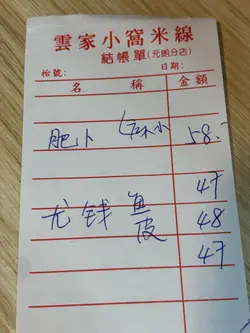 雲家小窩米線
結帳單(元朗分店)
枱號: 日期:
名 稱 金額
肥卜 58.-
47
尤钱鱼皮 48
47